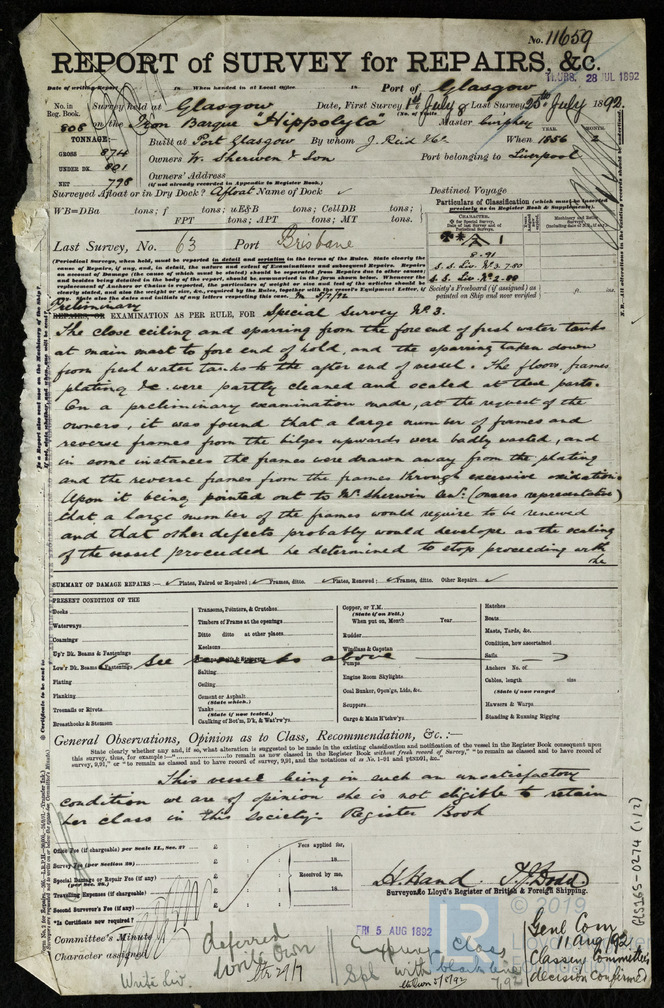 No. 11659
REPORT of SURVEY for REPAIRS, &c.
THURS. 28 JUL 1892
Date of writing Report 18 When handed in at Local Office 18 Port of Glasgow
No. in Reg. Book. Survey held at Glasgow Date, First Survey 1st July & Last Survey 25th July 1892.
(No. of Visits )
808 on the Iron Barque "Hippolyta" Master
TONNAGE: Built at Port Glasgow By whom J. Reid & Co When 1856 2
YEAR. MONTH.
GROSS 874 Owners W. Sherwen & Son Port belonging to Liverpool
UNDER DK. 801 Owners' Address
NET 798 (if not already recorded in Appendix to Register Book.)
Surveyed Afloat or in Dry Dock? Afloat Name of Dock Destined Voyage
WB=DBa tons; f tons; uE&B tons; CellDB tons;
FPT tons; APT tons; MT tons.
Particulars of Classification (which must be inserted precisely as in Register Book & Supplements).
CHARACTER.
1
8-91
S. S. Liv. No 3-7-80
S. S. Liv. No 2-88
Society's Freeboard (if assigned) as painted on Ship and now verified ft. ins.
Last Survey, No. 63 Port Brisbane
(Periodical Surveys, when held, must be reported in detail and seriatim in the terms of the Rules. State clearly the cause of Repairs, if any, and, in detail, the nature and extent of Examinations and subsequent Repairs. Repairs on account of Damage (the cause of which must be stated) should be separated from Repairs due to other causes; and besides being detailed in the body of the report, should be summarized in the form shown below.
Preliminary
REPAIRS, OR EXAMINATION AS PER RULE, FOR Special Survey No. 3.
The close ceiling and sparring from the fore end of fresh water tanks
at main mast to fore end of hold, and the sparring taken down
from fresh water tanks to the after end of vessel. The floors, frames
plating &c were partly cleaned and scaled at these parts.
On a preliminary examination made, at the request of the
owners, it was found that a large number of frames and
reverse frames from the bilges upwards were badly wasted, and
in some instances the frames were drawn away from the plating
and the reverse frames from the frames through excessive oxidation.
Upon it being pointed out to Mr Sherwin (owners representative)
that a large number of the frames would require to be renewed
and that other defects probably would develope as the scaling
of the vessel proceeded he determined to stop proceeding with
the
SUMMARY OF DAMAGE REPAIRS:— Plates, Faired or Repaired; Frames, ditto. Plates, Renewed; Frames, ditto. Other Repairs.
PRESENT CONDITION OF THE
Decks
Waterways
Coamings
Up'r Dk. Beams & Fastenings
Low'r Dk. Beams & Fastenings
Plating
Planking
Treenails or Rivets
Breasthooks & Stemson
Transoms, Pointers, & Crutches
Timbers of Frame at the openings
Ditto ditto at other places
Keelsons
Salting
Ceiling
Cement or Asphalt
(State which.)
Tanks
(State if now tested.)
Caulking of Bot'm, D'k, & Wat'rw'ys.
Copper, or Y.M.
(State if on Felt.)
When put on, Month Year
Rudder
Windlass & Capstan
Pumps
Engine Room Skylights
Coal Bunker, Open'gs, Lids, &c.
Scuppers
Cargo & Main H'tchw'ys
Hatches
Boats
Masts, Yards, &c.
Condition, how ascertained
Sails
Anchors No. of
Cables, length size
(State if now ranged
Hawsers & Warps
Standing & Running Rigging
See remarks above
General Observations, Opinion as to Class, Recommendation, &c.:—
State clearly whether any and, if so, what alteration is suggested to be made in the existing classification and notification of the vessel in the Register Book consequent upon
this survey, thus, for example:— "to remain as now classed in the Register Book without fresh record of Survey," "to remain classed and to have record of
survey, 9,91," or "to remain as classed and to have record of survey, 9,91, and the notations of
This vessel being in such an unsatisfactory
condition we are of opinion she is not eligible to retain
her class in this Society's Register Book
Office Fee (if chargeable) per Scale II., Sec. 27 £
Survey Fee (per Section 28) £
Special Damage or Repair Fee (if any) (per Sec. 28.) £
Travelling Expenses (if chargeable) £
Second Surveyor's Fee (if any) £
Fees applied for,
18
Received by me,
18
H. Hand. T. J. Dodd
Surveyors to Lloyd's Register of British & Foreign Shipping.
Is Certificate now required?
Committee's Minute
Character assigned
FRI 5 AUG 1892
deferred
Write Own
29/7
Write Liv
Expunge Class
with black line
Genl Com
11 Aug 92
Classing Committee's
decision confirmed
GLS165-0274 (1/2)
© 2019